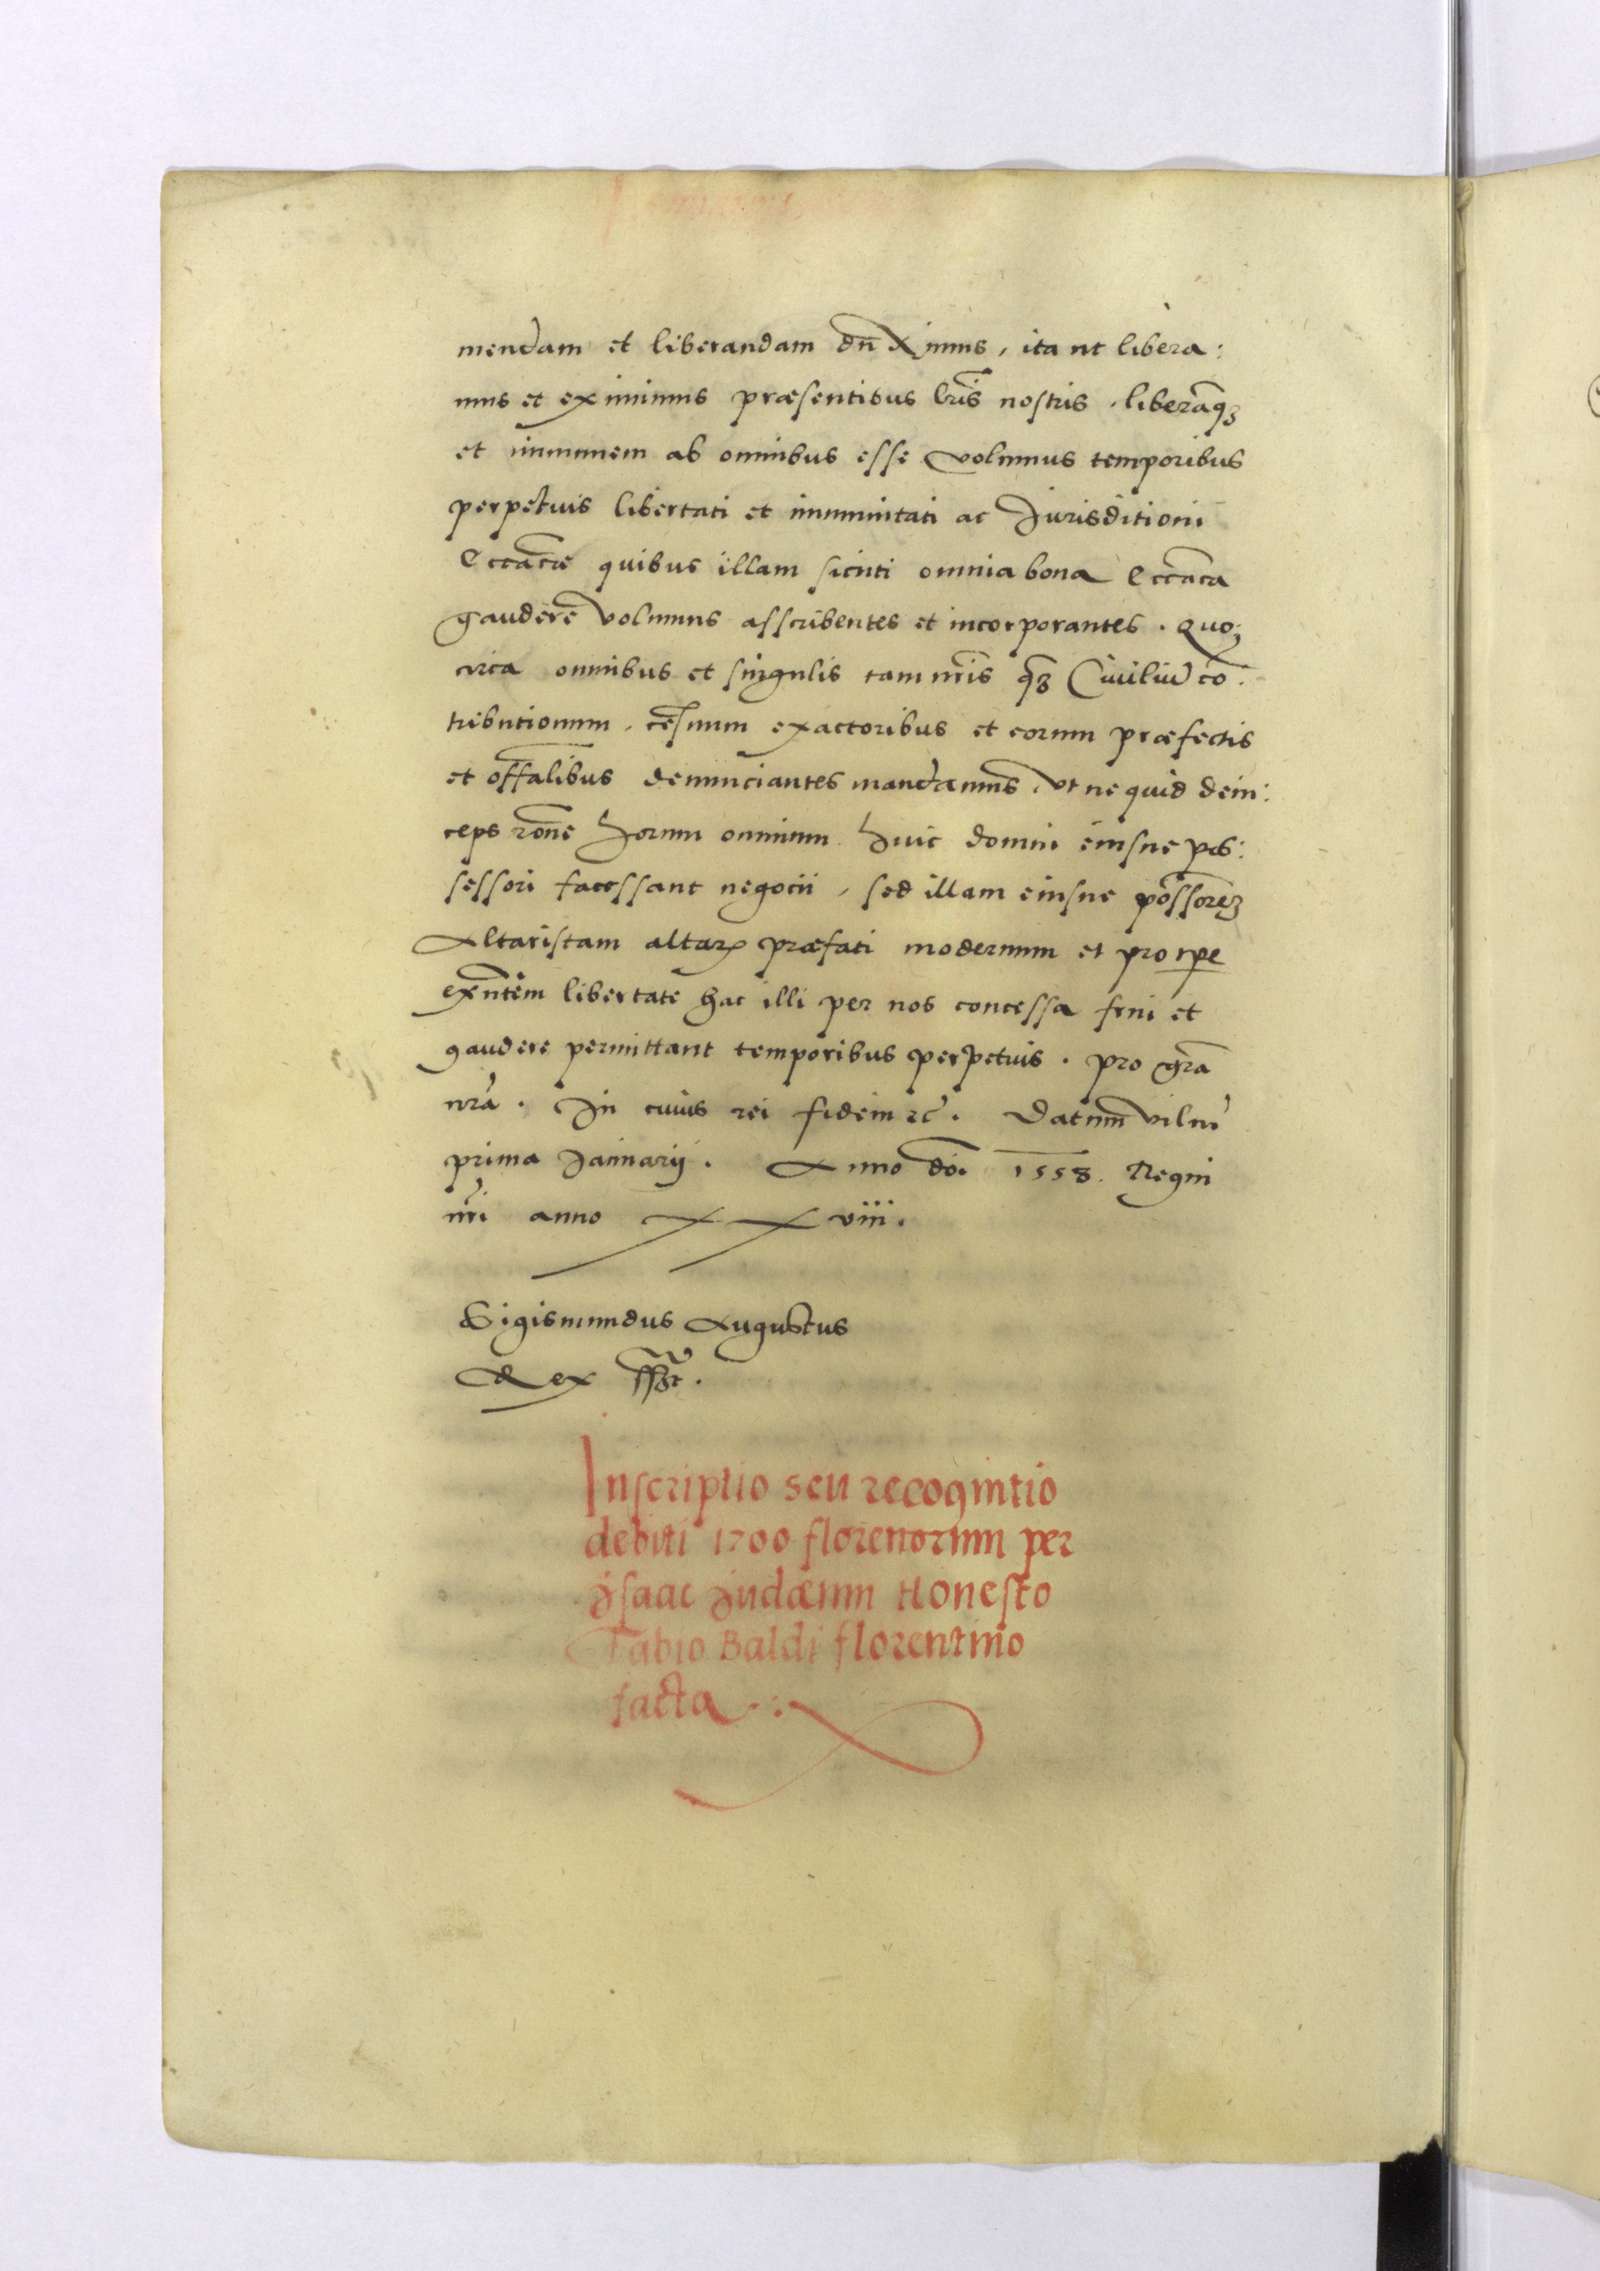 mendam et liberandam dn̄ Ximus, ita ut libera:
mus et eximimus præsentibus lr̄is nostris. liberāq3
et immunem ab omnibus esse volumus temporibus
perpetuis libertati et immunitati ac Jurisditioni
Eccācæ quibus illam sicuti omnia bona Eccāca
gaudere volumus asscribentes et incorporantes. Quo:
circa omnibus et singulis tam nr̄is q̄3 Ciuiliū cō:
tributionum, cēsuum exactoribus et eorum præfectis
et offālibus denunciantes mandamus, ut ne quid dein:
ceps rōne horum omnium huic domui eiusue pos:
sessori facessant negocii, sed illam eiusue pōssorē3
Altaristam altaris præfati modernum et pro tpe
exn̄tem libertate hac illi per nos concessa frui et
gaudere permittant temporibus perpetuis. pro gr̄a
nr̄a. In cuius rei fidem &c. Datum vilnē
prima Januarij. Anno doī 1558. Regni
nr̄i anno XXviii.
Sigismundus Augustus
Rex sszt.
Inscriptio seu recognitio
debiti 1700 florenorum per
Isaac Judæum Honesto
Fabio Baldi florentino
facta